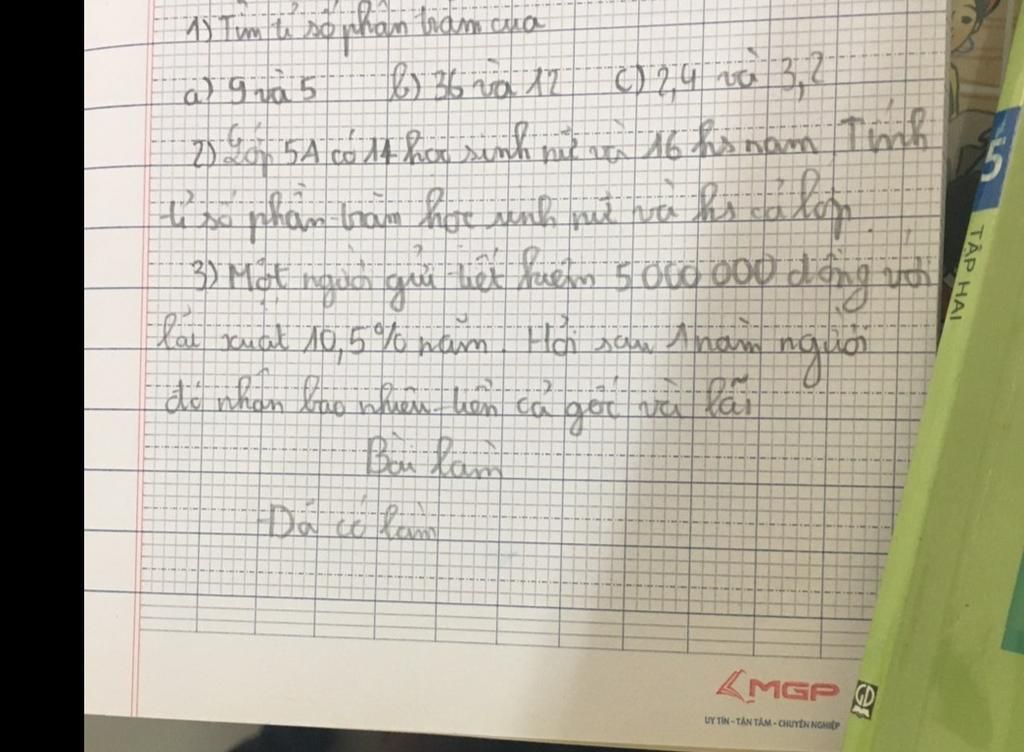 1) Tìm tỉ số phần trăm của
a) 9 và 5 b) 36 và 12 c) 2,4 và 3,2
2) Lớp 5A có 14 học sinh nữ và 16 hs nam. Tính
tỉ số phần trăm học sinh nữ và hs cả lớp.
3) Một người gửi tiết kiệm 5 000 000 đồng với
lãi xuất 10,5% năm. Hỏi sau 1 năm người
đó nhận bao nhiêu tiền cả gốc và lãi
Bài làm
Đã có làm
5
TẬP HAI
MGP
UY TÍN - TẬN TÂM - CHUYÊN NGHIỆP
GD